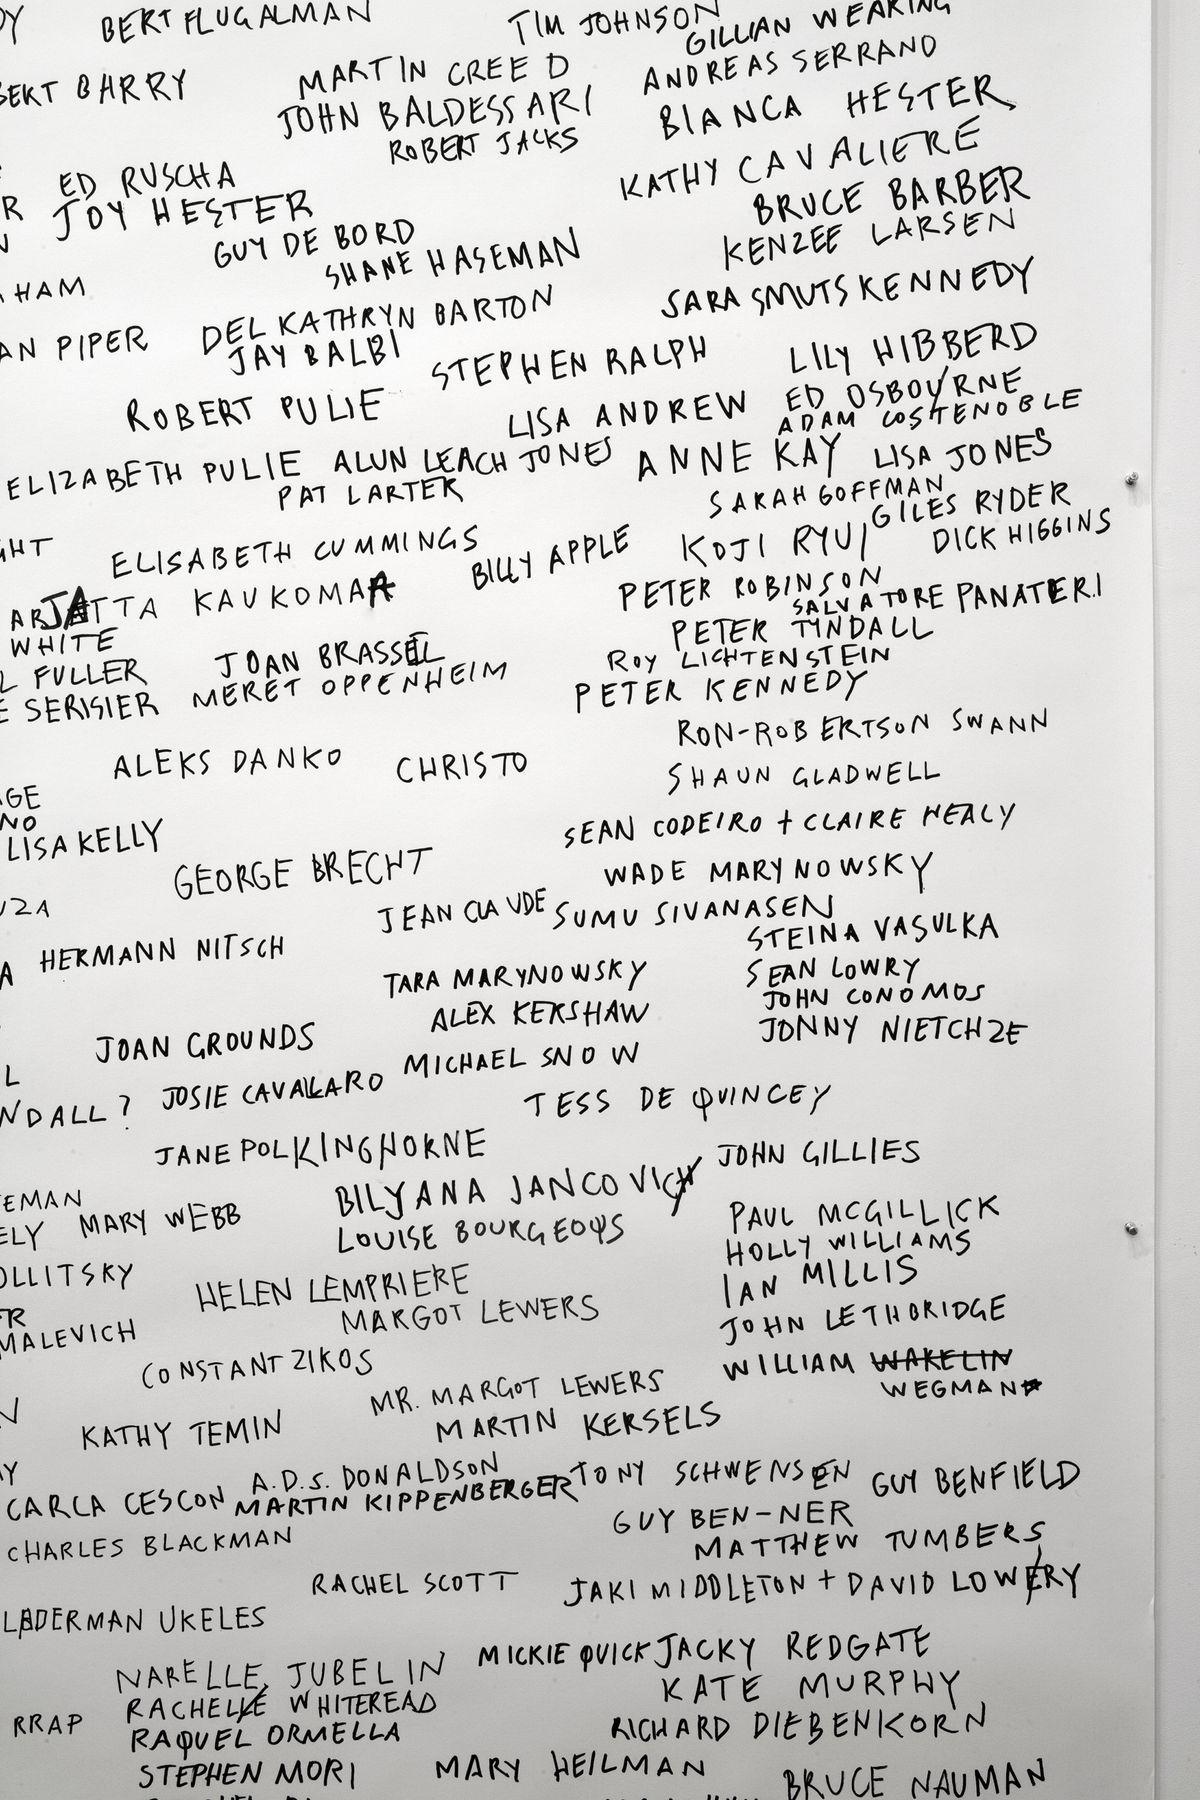 BERT FLUGALMAN
TIM JOHNSON
GILLIAN WEARING
BARRY
MARTIN CREED
ANDREAS SERRANO
JOHN BALDESSARI
BIANCA HESTER
ROBERT JACKS
KATHY CAVALIERE
ED RUSCHA
JOY HESTER
BRUCE BARBER
GUY DE BORD
KENZEE LARSEN
SHANE HASEMAN
HAM
SARA SMUTS KENNEDY
AN PIPER
DEL KATHRYN BARTON
JAY BALBI
STEPHEN RALPH
LILY HIBBERD
ROBERT PULIE
LISA ANDREW
ED OSBOURNE
ADAM COSTENOBLE
ELIZABETH PULIE
ALUN LEACH JONES
ANNE KAY
LISA JONES
PAT LARTER
SARAH GOFFMAN
GILES RYDER
GHT
ELISABETH CUMMINGS
BILLY APPLE
KOJI RYUI
DICK HIGGINS
KAUKOMAA
PETER ROBINSON
SALVATORE PANATERI
WHITE
PETER TYNDALL
L FULLER
JOAN BRASSEL
ROY LICHTENSTEIN
E SERISIER
MERET OPPENHEIM
PETER KENNEDY
RON-ROBERTSON SWANN
ALEKS DANKO
CHRISTO
SHAUN GLADWELL
AGE
NO
LISA KELLY
SEAN CODEIRO + CLAIRE HEALY
GEORGE BRECHT
WADE MARYNOWSKY
UZA
JEAN CLAUDE
SUMU SIVANASEN
STEINA VASULKA
A HERMANN NITSCH
TARA MARYNOWSKY
SEAN LOWRY
ALEX KERSHAW
JOHN CONOMOS
JOAN GROUNDS
JONNY NIETCHZE
L
MICHAEL SNOW
NDALL?
JOSIE CAVALLARO
TESS DE QUINCEY
JANE POLKINGHORNE
JOHN GILLIES
EMAN
BILYANA JANCOVICH
ELY
MARY WEBB
LOUISE BOURGEOIS
PAUL MCGILLICK
HOLLY WILLIAMS
OLLITSKY
HELEN LEMPRIERE
IAN MILLIS
ER
MALEVICH
MARGOT LEWERS
JOHN LETHBRIDGE
CONSTANT ZIKOS
WILLIAM WAKELIN
WEGMAN
MR. MARGOT LEWERS
N
KATHY TEMIN
MARTIN KERSELS
AY
A.D.S. DONALDSON
TONY SCHWENSEN
GUY BENFIELD
CARLA CESCON
MARTIN KIPPENBERGER
GUY BEN-NER
CHARLES BLACKMAN
MATTHEW TUMBERS
RACHEL SCOTT
JAKI MIDDLETON + DAVID LOWERY
LADERMAN UKELES
MICKIE QUICK
JACKY REDGATE
NARELLE JUBELIN
KATE MURPHY
RACHELLE WHITEREAD
RRAP
RAQUEL ORMELLA
RICHARD DIEBENKORN
STEPHEN MORI
MARY HEILMAN
BRUCE NAUMAN